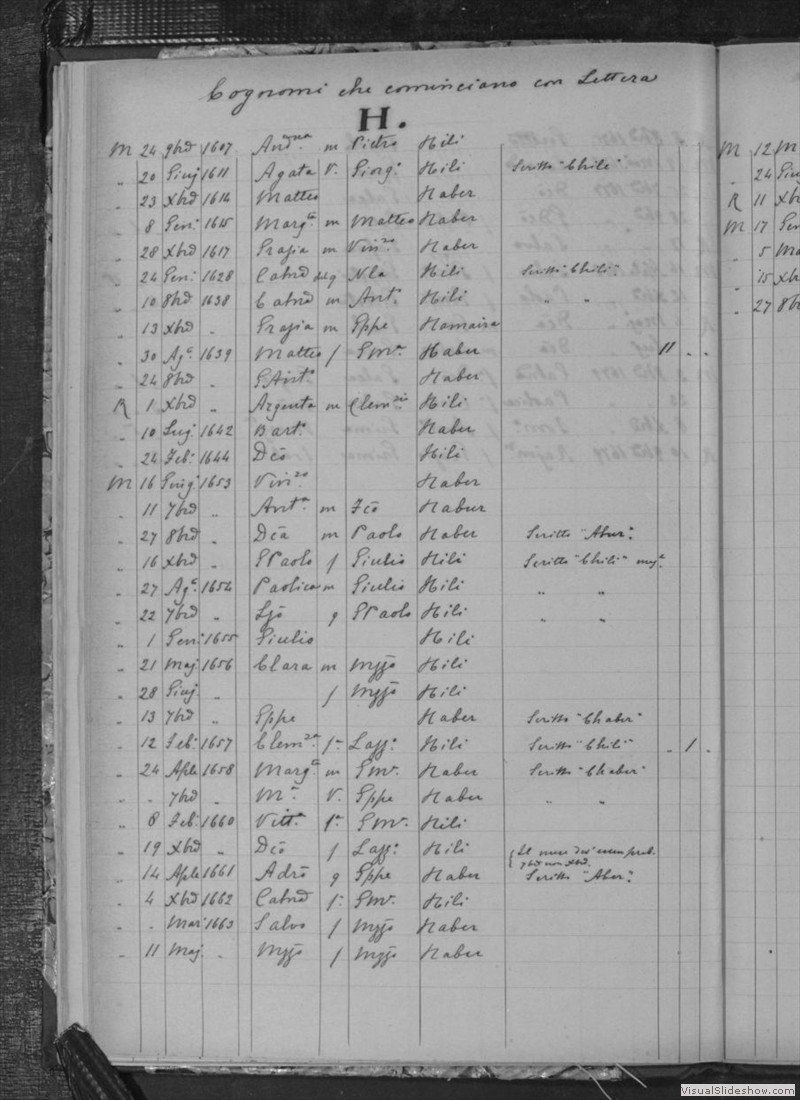 Cognomi che cominciano con Lettera
H.
M 24 9brē 1607 Andna m Pietro Hili
„ 20 Giug 1611 Agata v. Giorgo Hili Scritto "Chili"
„ 23 Xbrē 1614 Matteo Haber
„ 8 Gen: 1615 Margta m Matteo Haber
„ 28 Xbrē 1617 Grazia m Vinzo Haber
„ 24 Gen: 1628 Catnā Nla Hili Scritto "Chili"
„ 10 8brē 1638 Catnā m Anto Hili „ „
„ 13 Xbrē „ Grazia m Gppe
„ 30 Ago 1639 Matteo f Haber 11 . .
„ 24 8brē „ Haber
R 1 Xbrē „ Argenta m Clemzo Hili
„ 10 1642 Barto Haber
„ 24 Feb: 1644 Dcō Hili
M 16 Giug 1653 Vinzo Haber
„ 11 7brē „ Anta m Fcō Habur
„ 27 8brē „ Dcā m Paolo Haber Scritto "Abur"
„ 16 Xbrē „ GPaolo f Giulio Hili Scritto "Chili"
„ 27 Ago 1654 Paolica m Giulio Hili „ „
„ 22 7brē „ g GPaolo Hili „ „
„ 1 Gen: 1655 Giulio Hili
„ 21 Mag 1656 Clara m Hili
„ 28 Giug. „ f Hili
„ 13 7brē „ Gppe Haber Scritto "Chaber"
„ 12 Feb: 1657 Clemza fa Hili Scritto "Chili" . 1 .
„ 24 Aple 1658 Margta m Haber Scritto "Chaber"
„ „ 7brē „ Ma v. Gppe Haber „ „
„ 8 Feb: 1660 Vitta fa Hili
„ 19 Xbrē „ Dcō f Hili 7brē non Xbrē.
„ 14 Aple 1661 g Gppe Haber Scritto "Aber"
„ 4 Xbrē 1662 Catnā fa Hili
„ . Mar 1663 Salvo f Haber
„ 11 Mag. „ f Haber
M 12
„ 24
R 11
M 17
„ 5
„ 15
„ 27
VisualSlideshow.com